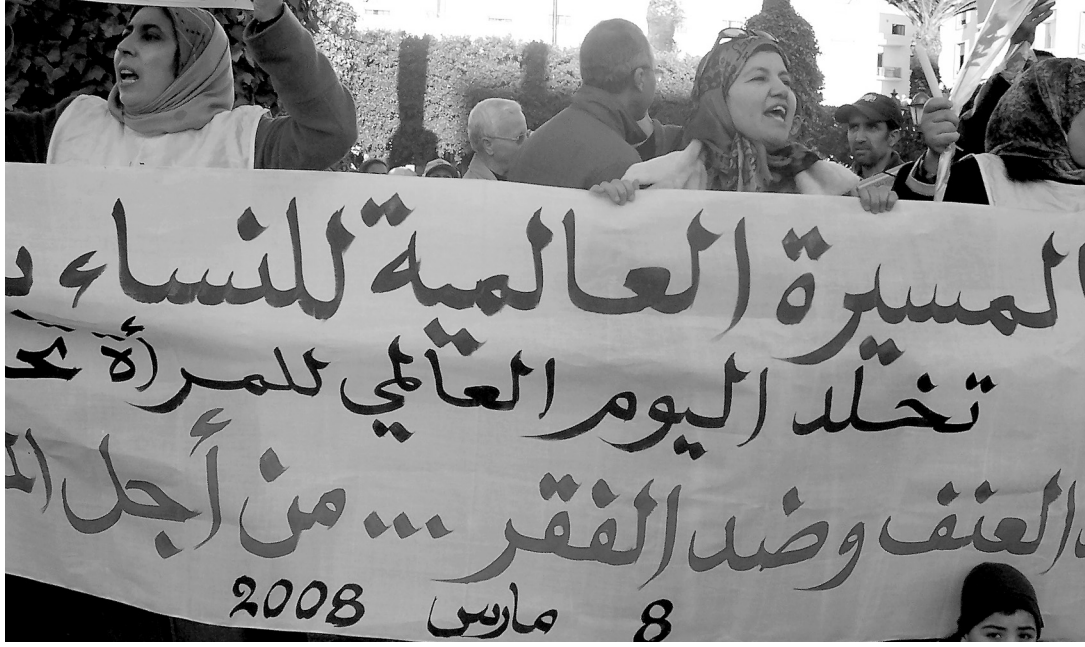 المسيرة العالمية للنساء
تخلد اليوم العالمي للمرأة
العنف وضد الفقر ... من أجل
8 مارس 2008